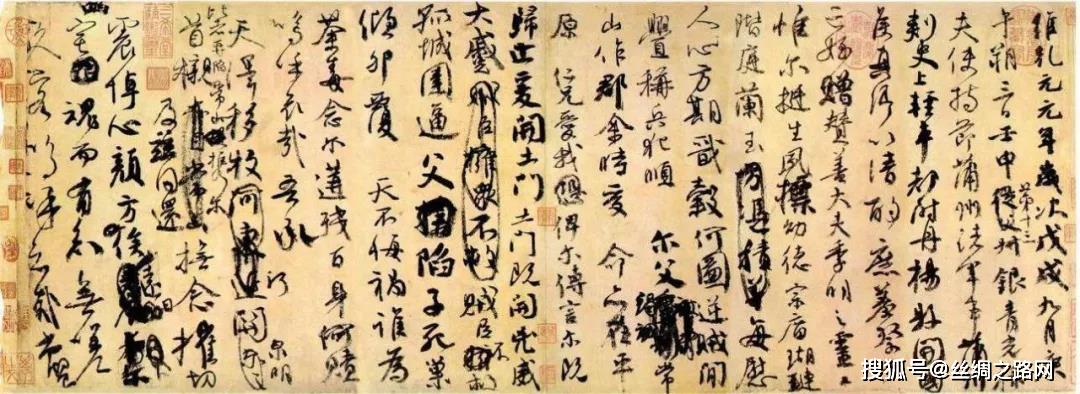 維乾元元年歲次戊戌九月庚
午朔三日壬申第十三從父叔銀青光祿
夫使持節蒲州諸軍事蒲州
刺史上輕車都尉丹楊縣開國
侯真卿以清酌庶羞祭于
亡姪贈贊善大夫季明之靈曰
惟爾挺生夙標幼德宗廟瑚璉
階庭蘭玉方憑積善每慰
人心方期戩穀何圖逆賊間
釁稱兵犯順爾父竭誠常
山作郡余時受命亦在平
原仁兄愛我俾爾傳言爾既
歸止爰開土門土門既開凶威
大蹙賊臣擁眾不救賊臣不救
孤城圍逼父陷子死巢
傾卵覆天不悔禍誰為
荼毒念爾遘殘百身何贖
嗚呼哀哉吾承
天澤移牧河關泉明
比者再陷常山攜爾
首櫬及茲同還撫念摧切
震悼心顏方俟遠日
幽宅魂而有知無嗟
久客嗚呼哀哉尚饗
搜狐号@丝绸之路网